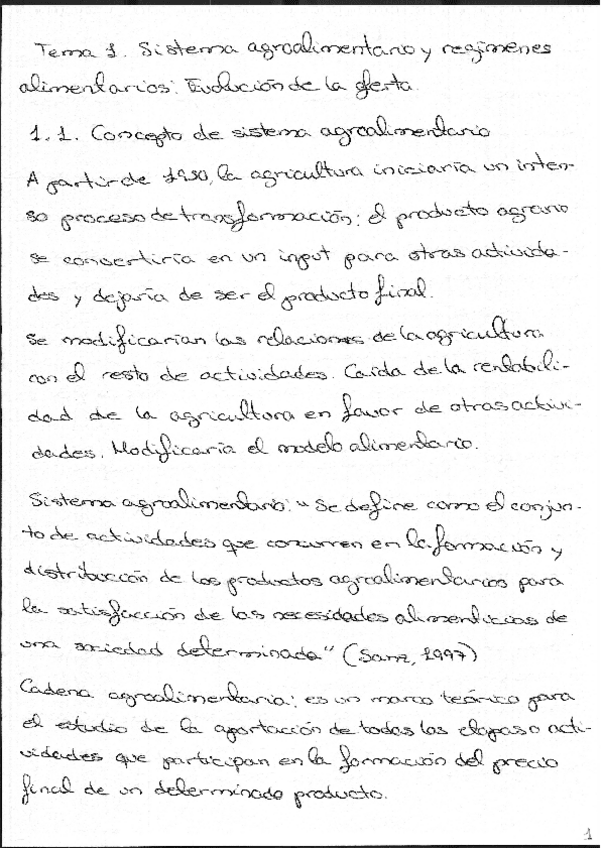 Tema 1. Sistema agroalimentario y regímenes
alimentarios: Evolución de la oferta.
1.1. Concepto de sistema agroalimentario
A partir de 1950, la agricultura iniciaría un inten-
so proceso de transformación: el producto agrario
se convertiría en un input para otras activida-
des y dejaría de ser el producto final.
Se modificarían las relaciones de la agricultura
con el resto de actividades. Caída de la rentabili-
dad de la agricultura en favor de otras activi-
dades. Modificaría el modelo alimentario.
Sistema agroalimentario: "Se define como el conjun-
to de actividades que concurren en la formación y
distribución de los productos agroalimentarios para
la satisfacción de las necesidades alimenticias de
una sociedad determinada" (Sanz, 1997)
Cadena agroalimentaria: es un marco teórico para
el estudio de la aportación de todas las etapas o acti-
vidades que participan en la formación del precio
final de un determinado producto.
1